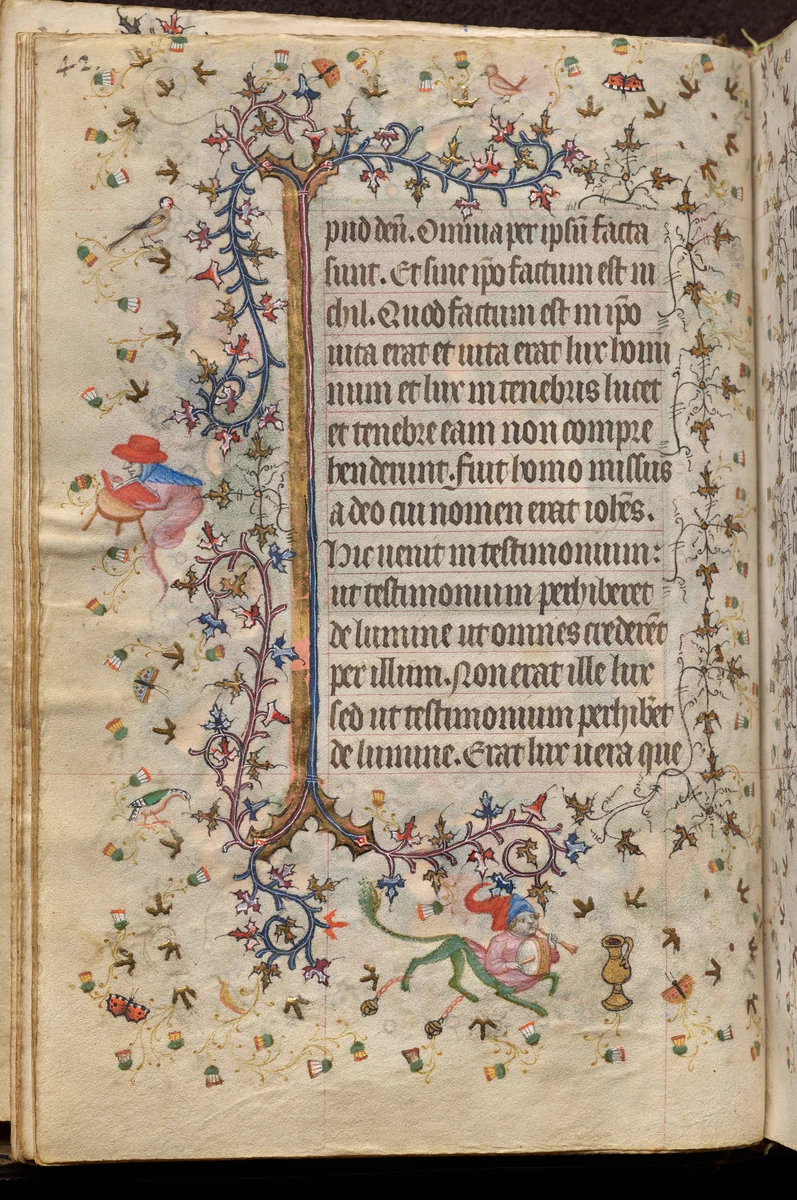 42.
pud deū. Omnia per ipsū facta
sunt. Et sine ip̄o factum est ni
chil. Quod factum est in ip̄o
uita erat et uita erat lux homi
num et lux in tenebris lucet
et tenebre eam non compre
henderunt. Fuit homo missus
a deo cui nomen erat ioh̄es.
Hic uenit in testimonium:
ut testimonium perhiberet
de lumine ut omnes crederēt
per illum. Non erat ille lux
sed ut testimonium perhib̄et
de lumine. Erat lux uera que